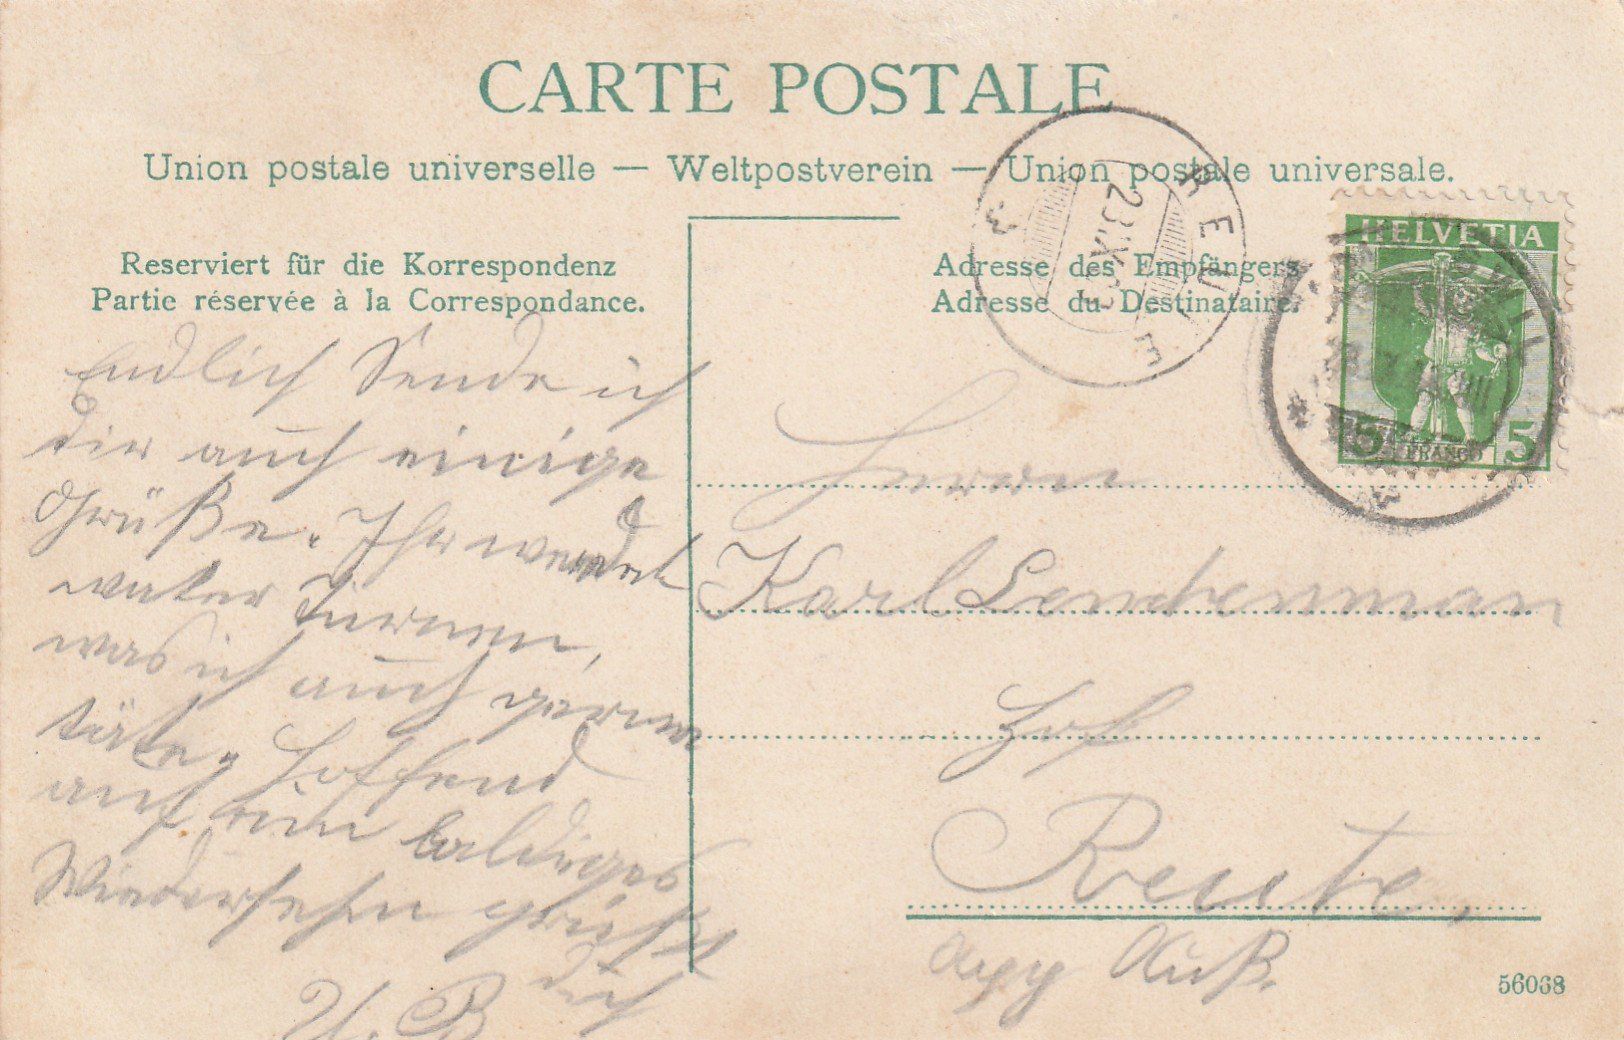 CARTE POSTALE
Union postale universelle — Weltpostverein — Union postale universale.
Reserviert für die Korrespondenz
Partie réservée à la Correspondance.
Adresse des Empfängers
Adresse du Destinataire.
REUTE
23.IX.
HELVETIA
5 FRANCO 5
Endlich Sende ich
dir auch einige
Grüße. Ihr werdet
waker turnen,
was ich auch gerne
täte. Hoffend
auf ein baldiges
Wiedersehn grüßt
dich
Herrn
Karl Lendenman
Hof
Reute,
App Auß.
56068